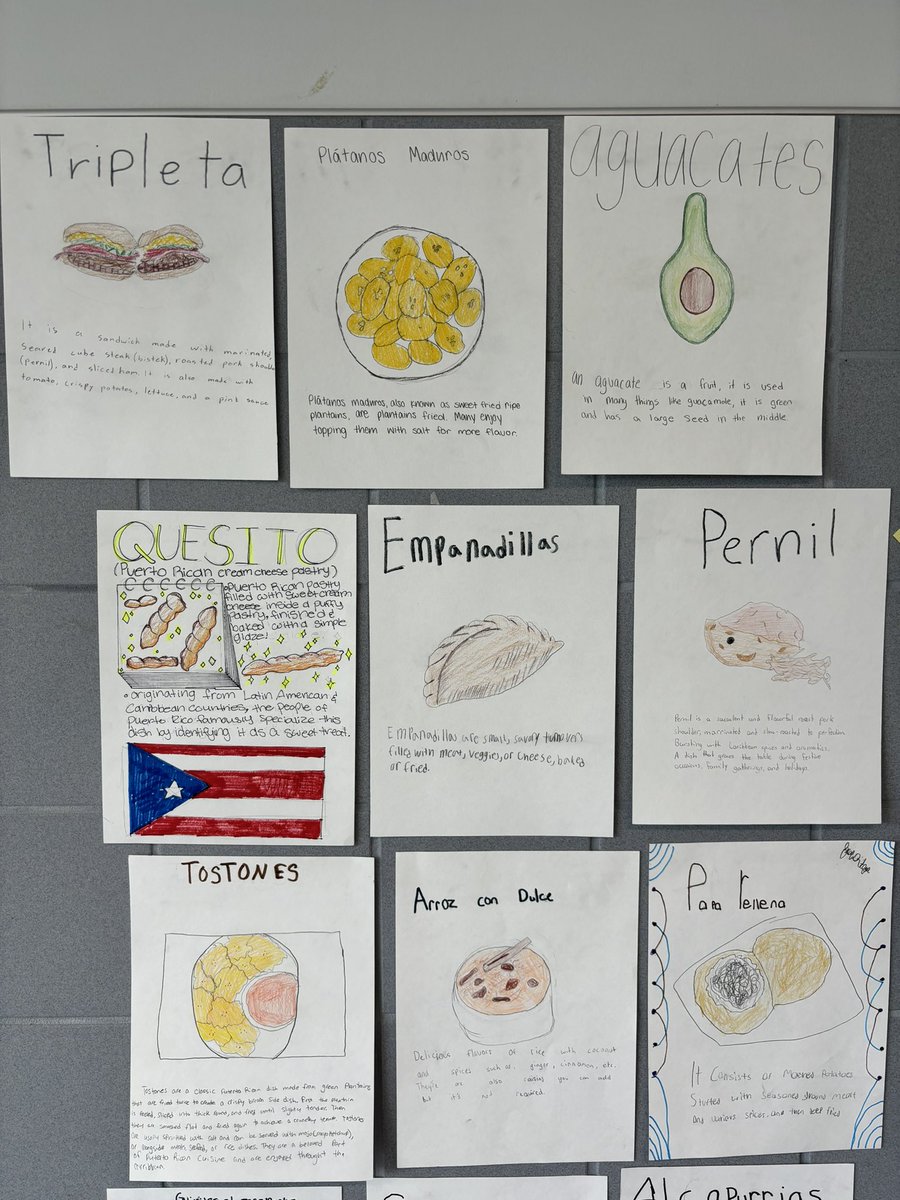 Tripleta
It is a sandwich made with marinated,
seared cube steak (bistek), roasted pork shoulder
(pernil), and sliced ham. It is also made with
tomato, crispy potatoes, lettuce, and a pink sauce
Plátanos Maduros
Plátanos maduros, also known as sweet fried ripe
plantains, are plantains fried. Many enjoy
topping them with salt for more flavor.
aguacates
an aguacate is a fruit, it is used
in many things like guacamole, it is green
and has a large seed in the middle.
QUESITO
(Puerto Rican cream cheese pastry)
• Puerto Rican pastry
filled with sweet cream
cheese inside a puffy
pastry, finished &
baked with a simple
glaze!
• originating from Latin American &
Caribbean countries, the people of
Puerto Rico famously specialize this
dish by identifying it as a sweet treat.
Empanadillas
Empanadillas are small, savory turnovers
filled with meat, veggies, or cheese, baked
or fried.
Pernil
Pernil is a succulent and flavorful roast pork
shoulder, marinated and slow-roasted to perfection.
Bursting with Caribbean spices and aromatics.
A dish that graces the table during festive
occasions, family gatherings, and holidays.
TOSTONES
Tostones are a classic Puerto Rican dish made from green plantains
that are fried twice to create a crispy brown side dish. First the plantain
is peeled, sliced into thick rounds, and fried until slightly tender. Then
they are smashed flat and fried again to achieve a crunchy texture. Tostones
are usually sprinkled with salt and can be served with mojo
or alongside meats, seafood, or rice dishes. They are a beloved part
of Puerto Rican cuisine and are enjoyed throughout the
Caribbean.
Arroz con Dulce
Delicious flavors of rice with coconut
and spices such as, ginger, cinnamon, etc.
also raisins you can add
but it's not required.
Papa rellena
It consists of Mashed Potatoes
Stuffed with seasoned ground meat
and various spices, and then deep fried
Alcapurrias